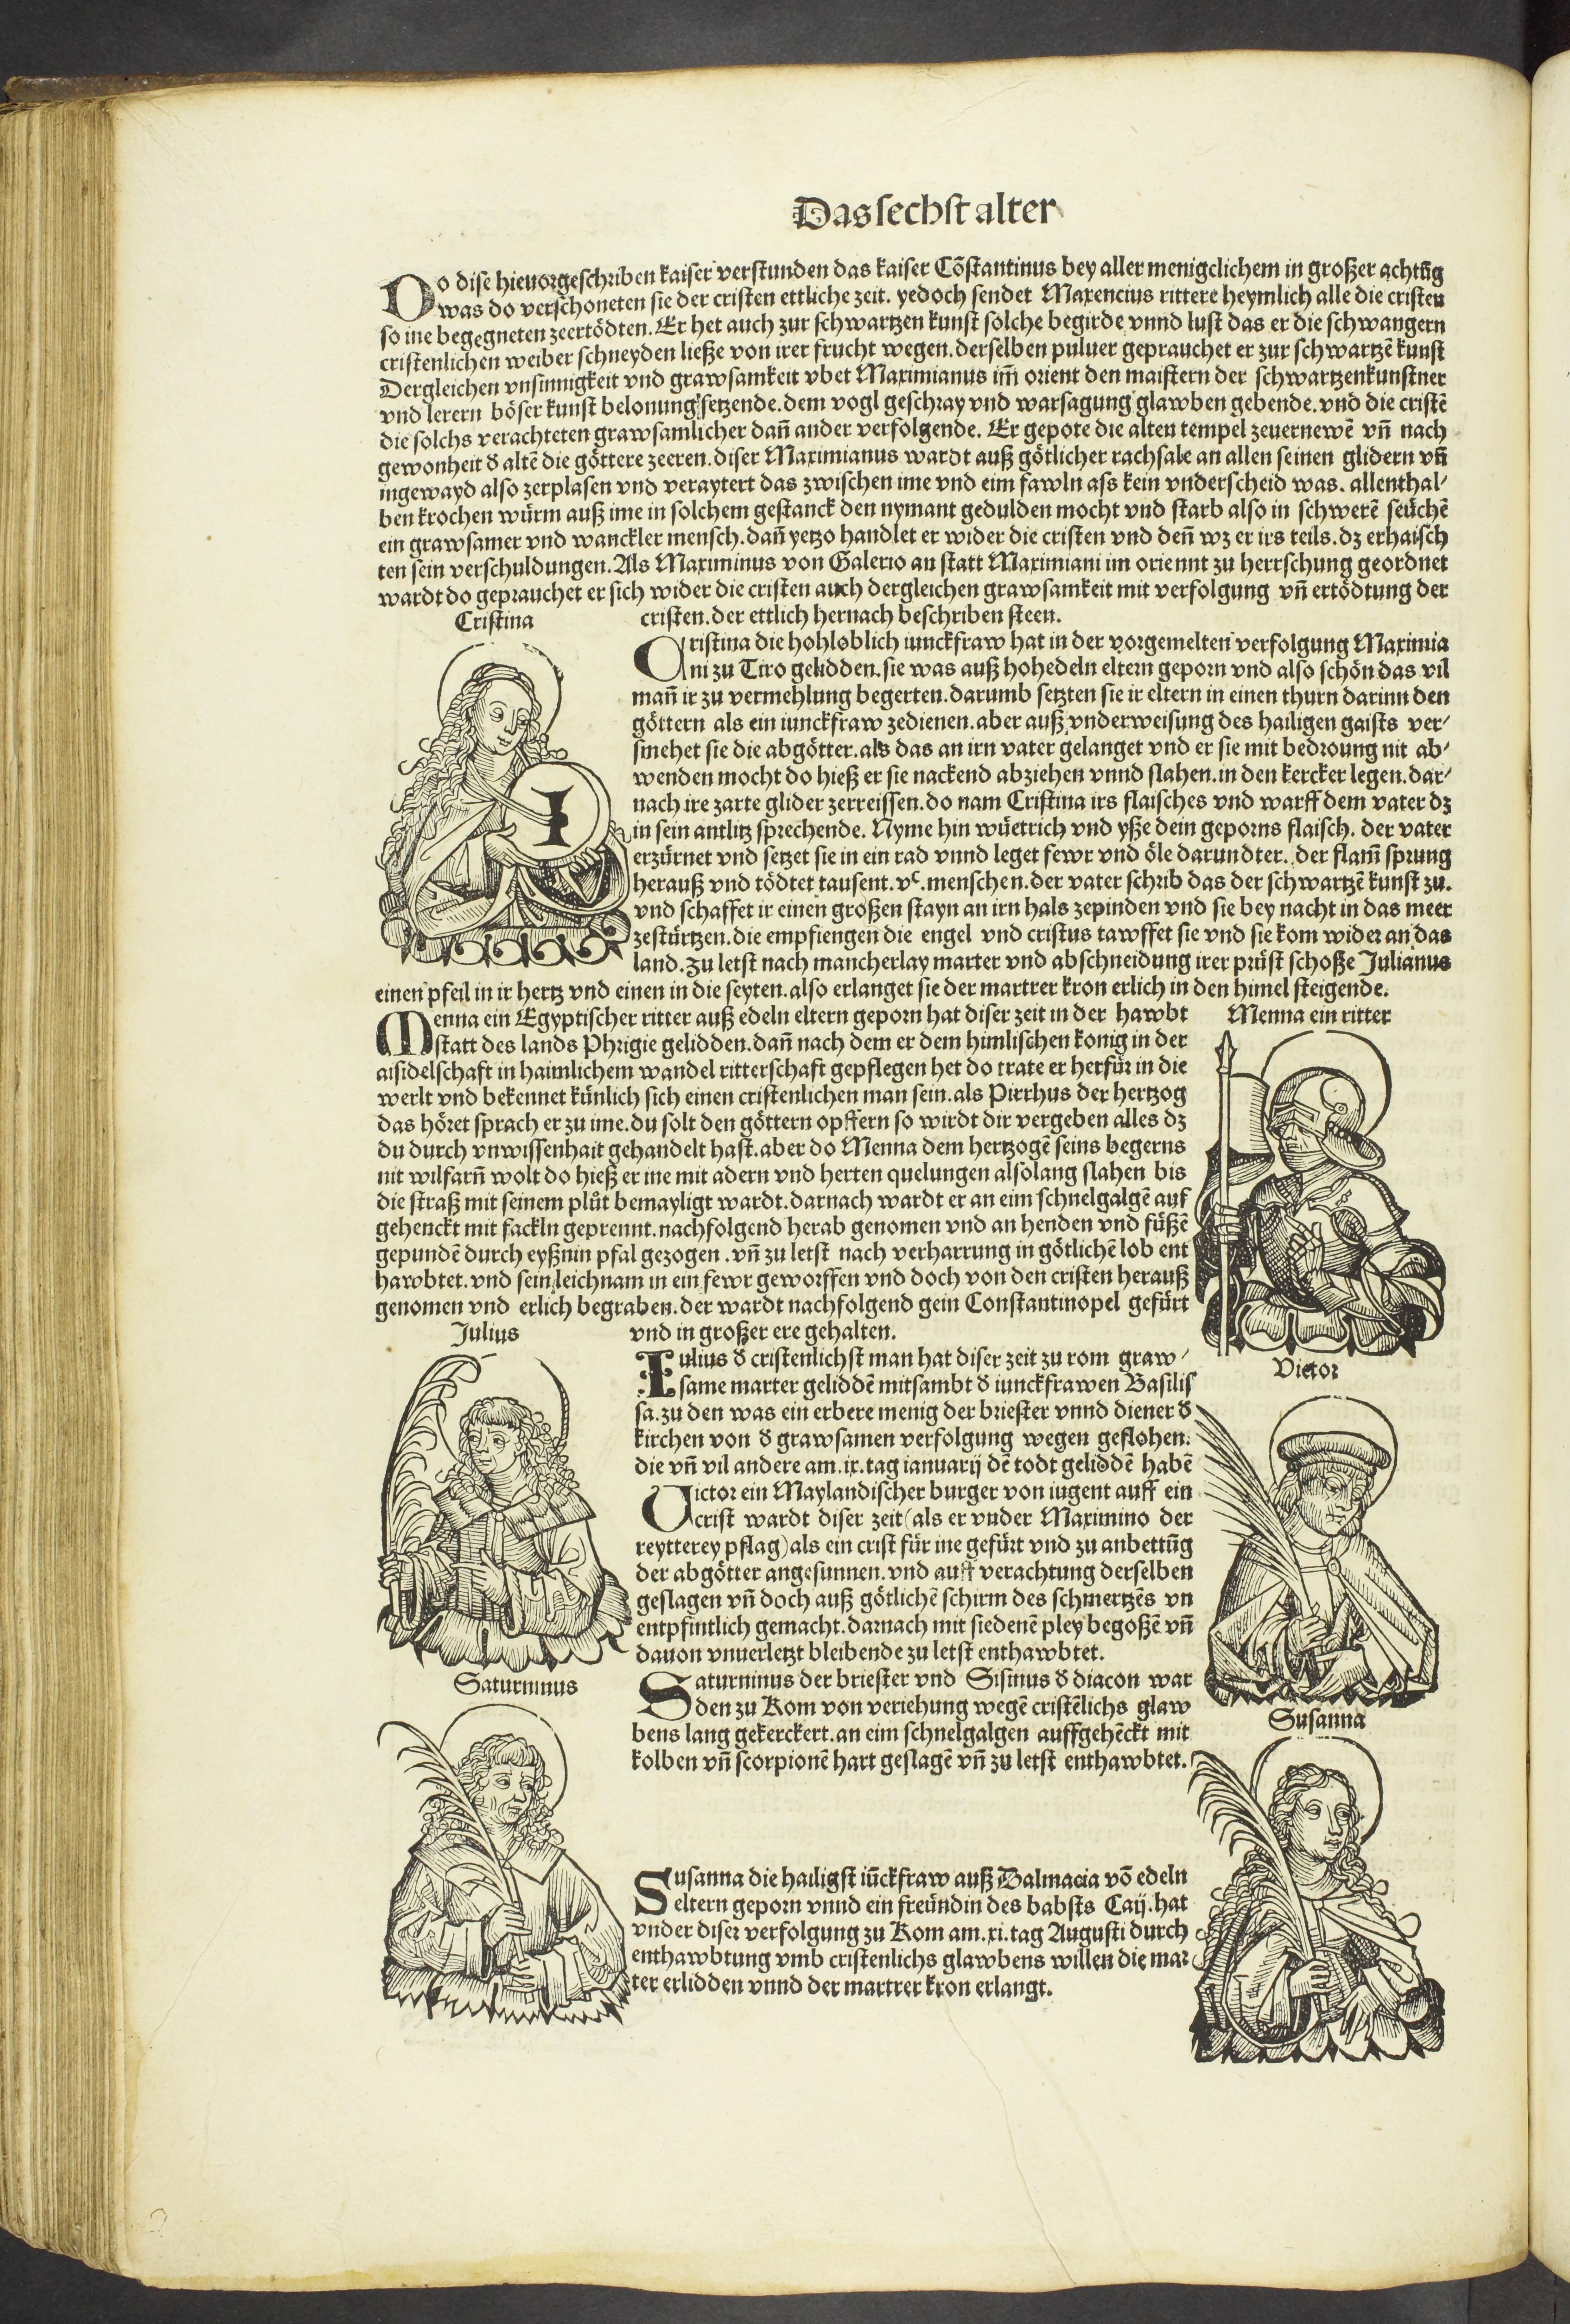 Das sechst alter
Do dise hieuorgeschriben kaiser verstunden das kaiser Cōstantinus bey aller menigclichem in großer achtūg
was do verschoneten sie der cristen ettliche zeit. yedoch sendet Maxencius rittere heymlich alle die cristen
so ine begegneten zeertödten. Er het auch zur schwartzen kunst solche begirde vnnd lust das er die schwangern
cristenlichen weiber schneyden ließe von irer frucht wegen. derselben puluer geprauchet er zur schwartzē kunst
Dergleichen vnsinnigkeit vnd grawsamkeit vbet Maximianus im̄ orient den maistern der schwartzenkunstner
vnd lerern böser kunst belonung setzende. dem vogl geschray vnd warsagung glawben gebende. vnd die cristē
die solchs verachteten grawsamlicher dan̄ ander verfolgende. Er gepote die alten tempel zeuernewē vn̄ nach
gewonheit d̕ altē die göttere zeeren. diser Maximianus wardt auß götlicher rachsale an allen seinen glidern vn̄
ingewayd also zerplasen vnd veraytert das zwischen ime vnd eim fawln ass kein vnderscheid was. allenthal/
ben krochen würm auß ime in solchem gestanck den nymant gedulden mocht vnd starb also in schwerē seüchē
ein grawsamer vnd wanckler mensch. dan̄ yetzo handlet er wider die cristen vnd den̄ wz er irs teils. dz erhaisch
ten sein verschuldungen. Als Maximinus von Galerio an statt Maximiani im oriennt zu herrschung geordnet
wardt do geprauchet er sich wider die cristen auch dergleichen grawsamkeit mit verfolgung vn̄ ertödtung der
cristen. der ettlich hernach beschriben steen.
Cristina
Cristina die hohloblich iunckfraw hat in der vorgemelten verfolgung Maximia
ni zu Tiro gelidden. sie was auß hohedeln eltern geporn vnd also schön das vil
man̄ ir zu vermehlung begerten. darumb setzten sie ir eltern in einen thurn darinn den
göttern als ein iunckfraw zedienen. aber auß vnderweisung des hailigen gaists ver/
smehet sie die abgötter. als das an irn vater gelanget vnd er sie mit bedroung nit ab/
wenden mocht do hieß er sie nackend abziehen vnnd slahen. in den kercker legen. dar/
nach ire zarte glider zerreissen. do nam Cristina irs flaisches vnd warff dem vater dz
in sein antlitz sprechende. Nyme hin wüetrich vnd yße dein geporns flaisch. der vater
erzürnet vnd setzet sie in ein rad vnnd leget fewr vnd öle darundter. der flam̄ sprung
herauß vnd tödtet tausent. vᶜ. menschen. der vater schrib das der schwartzē kunst zu.
vnd schaffet ir einen großen stayn an irn hals zepinden vnd sie bey nacht in das meer
zestürtzen. die empfiengen die engel vnd cristus tawffet sie vnd sie kom wider an das
land. Zu letst nach mancherlay marter vnd abschneidung irer prüst schoße Julianus
einen pfeil in ir hertz vnd einen in die seyten. also erlanget sie der martrer kron erlich in den himel steigende.
Menna ein ritter
Menna ein Egyptischer ritter auß edeln eltern geporn hat diser zeit in der hawbt
statt des lands Phrigie gelidden. dan̄ nach dem er dem himlischen konig in der
aisidelschaft in haimlichem wandel ritterschaft gepflegen het do trate er herfür in die
werlt vnd bekennet künlich sich einen cristenlichen man sein. als Pirrhus der hertzog
das höret sprach er zu ime. du solt den göttern opffern so wirdt dir vergeben alles dz
du durch vnwissenhait gehandelt hast. aber do Menna dem hertzogē seins begerns
nit wilfarn̄ wolt do hieß er ine mit adern vnd herten quelungen alsolang slahen bis
die straß mit seinem plůt bemayligt wardt. darnach wardt er an eim schnelgalgē auf
gehenckt mit fackln geprennt. nachfolgend herab genomen vnd an henden vnd füßē
gepundē durch eyßnin pfal gezogen. vn̄ zu letst nach verharrung in götlichē lob ent
hawbtet. vnd sein leichnam in ein fewr geworffen vnd doch von den cristen herauß
genomen vnd erlich begraben. der wardt nachfolgend gein Constantinopel gefürt
vnd in großer ere gehalten.
Julius
Julius d̕ cristenlichst man hat diser zeit zu rom graw/
same marter geliddē mitsambt d̕ iunckfrawen Basilis
sa. zu den was ein erbere menig der briester vnnd diener d̕
kirchen von d̕ grawsamen verfolgung wegen geflohen.
die vn̄ vil andere am. ix. tag ianuarij dē todt geliddē habē
Victor
Uictor ein Maylandischer burger von iugent auff ein
crist wardt diser zeit (als er vnder Maximino der
reytterey pflag) als ein crist für ine gefürt vnd zu anbettūg
der abgötter angesunnen. vnd auff verachtung derselben
geslagen vn̄ doch auß götlichē schirm des schmertzēs vn
entpfintlich gemacht. darnach mit siedenē pley begoßē vn̄
dauon vnuerletzt bleibende zu letst enthawbtet.
Saturninus
Saturninus der briester vnd Sisinus d̕ diacon war
den zu Rom von veriehung wegē cristēlichs glaw
bens lang gekerckert. an eim schnelgalgen auffgehēckt mit
kolben vn̄ scorpionē hart geslagē vn̄ zu letst enthawbtet.
Susanna
Susanna die hailigst iūckfraw auß Dalmacia vō edeln
eltern geporn vnnd ein freündin des babsts Caij. hat
vnder diser verfolgung zu Rom am. xi. tag Augusti durch
enthawbtung vmb cristenlichs glawbens willen die mar
ter erlidden vnnd der martrer kron erlangt.